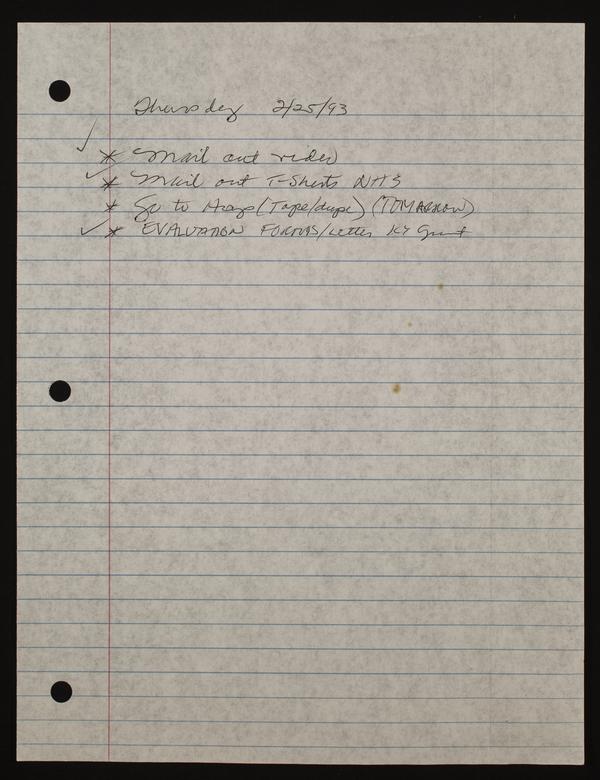 Thursday 2/25/93
✓ * Mail out video
✓ * Mail out T-Shirts NHS
* Go to Hays (Tape/dupe) (TOMARROW)
✓ * EVALUATION FORMS/Letter KY Grant